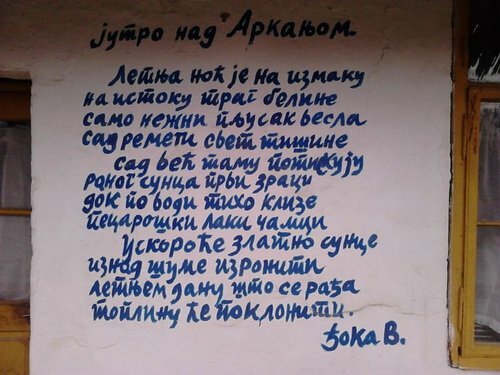 јутро над Аркањом.
Летња ноћ је на измаку
на истоку траг белине
само нежни пљусак весла
сад ремети свет тишине
сад већ таму потискују
раног сунца први зраци
док по води тихо клизе
пецарошки лаки чамци
Ускоро ће златно сунце
изнад шуме изронити
летњем дану што се рађа
топлину ће поклонити.
Ђока В.